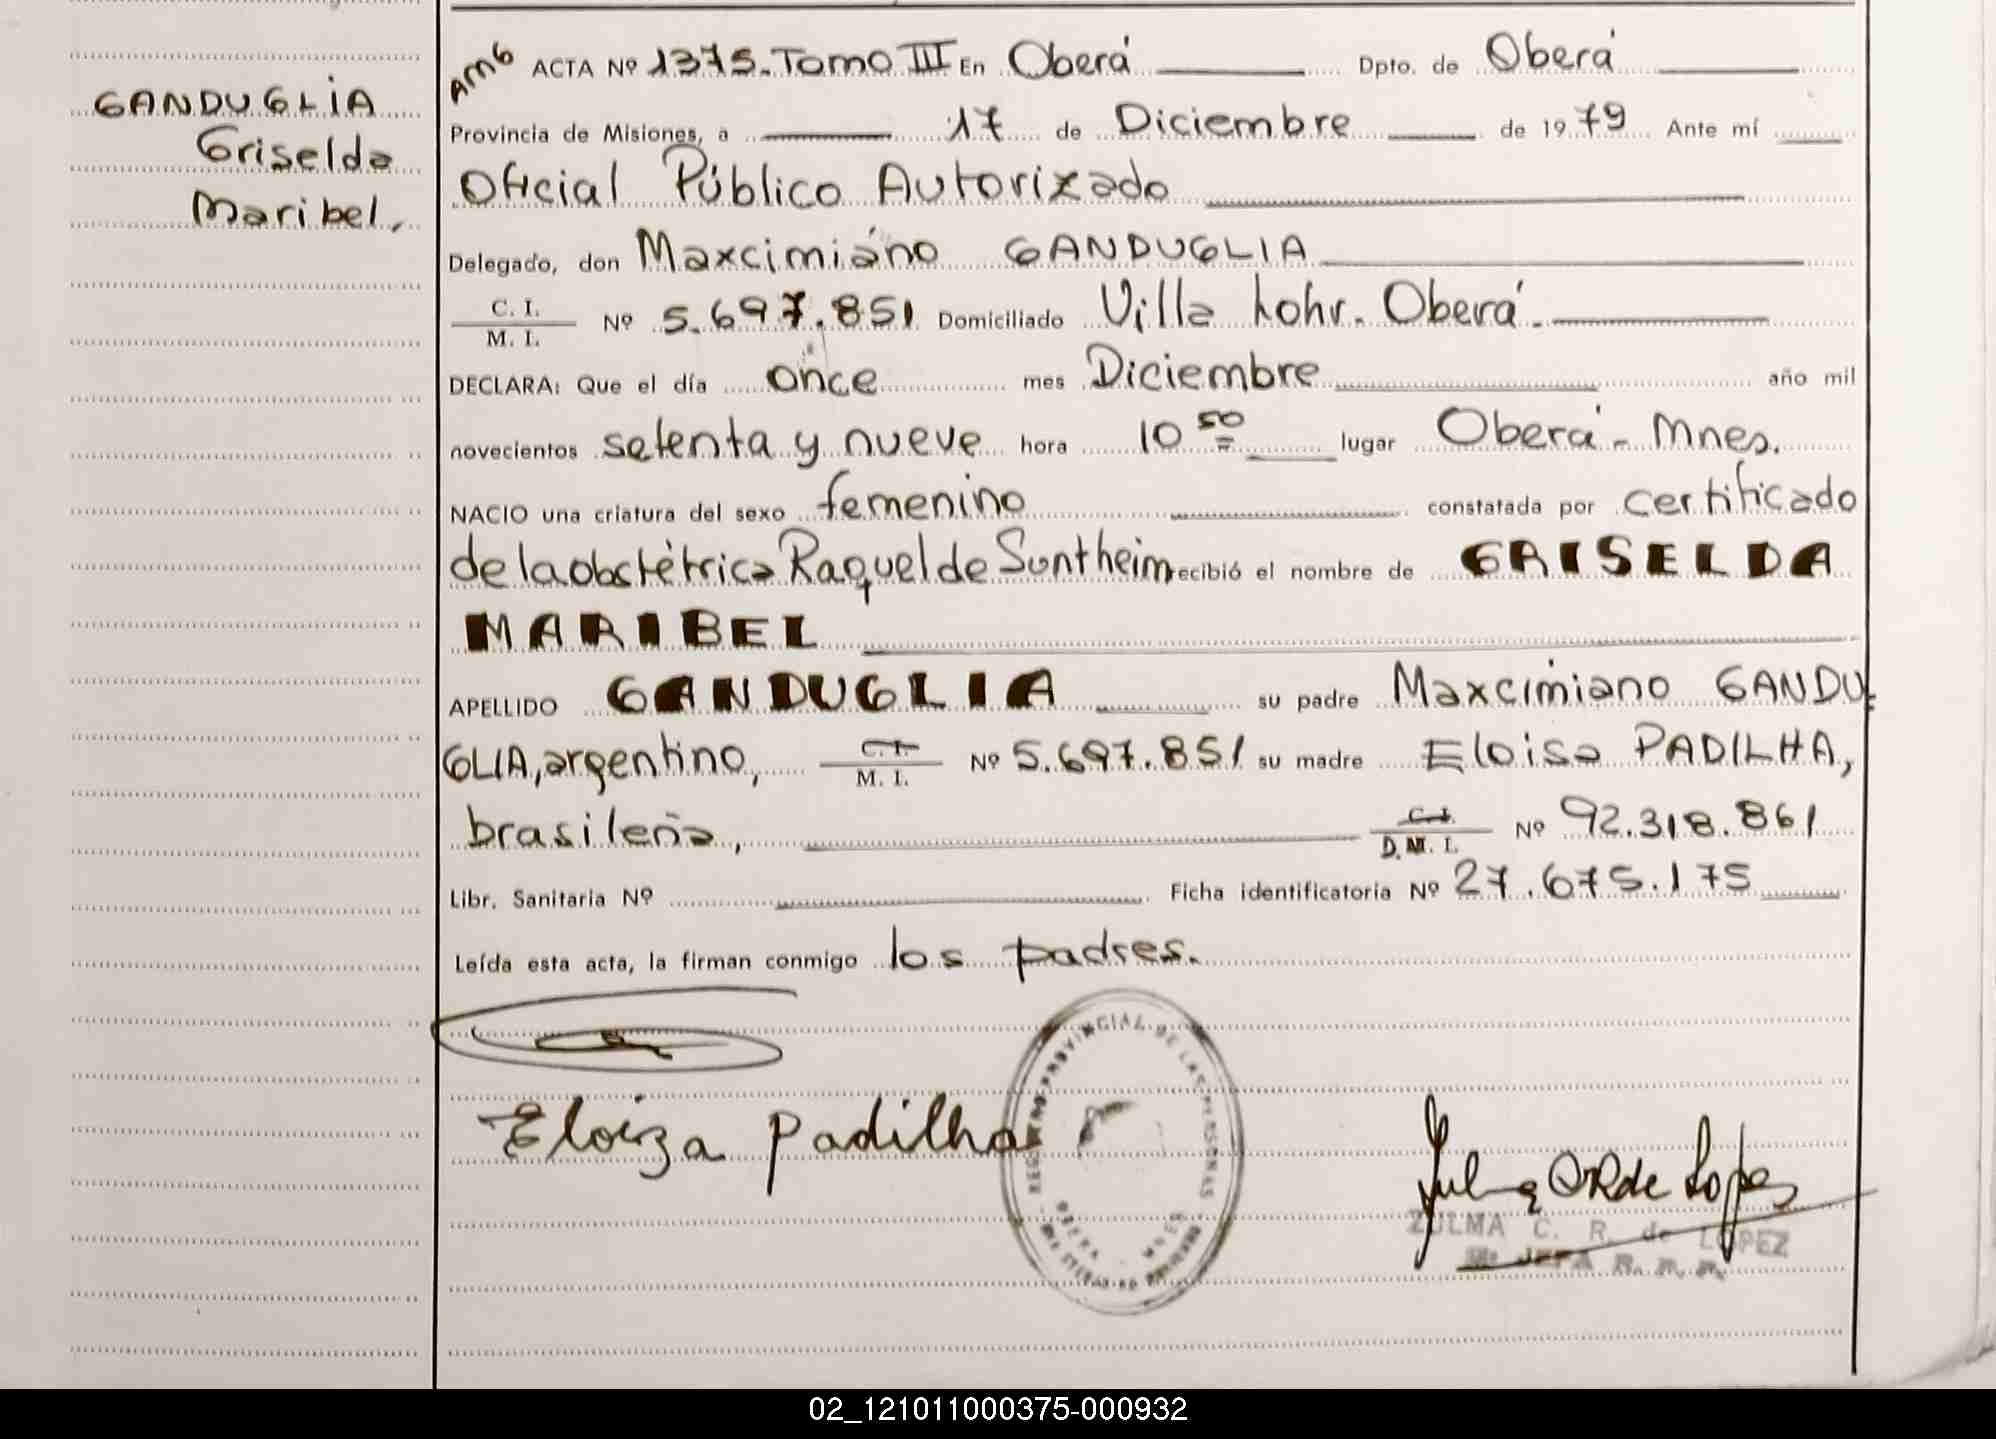 GANDUGLIA
Griselda
Maribel,
ACTA Nº 1375. Tomo III En Oberá Dpto. de Oberá
Provincia de Misiones, a 17 de Diciembre de 1979 Ante mí
Oficial Público Autorizado
Delegado, don Maxcimiáno GANDUGLIA
C. I.
M. I. Nº 5.697.851 Domiciliado Villa Lohr. Oberá.
DECLARA: Que el día once mes Diciembre año mil
novecientos setenta y nueve hora 10 50 lugar Oberá - Mnes.
NACIO una criatura del sexo femenino constatada por certificado
de la obstétrica Raquel de Suntheim recibió el nombre de GRISELDA
MARIBEL
APELLIDO GANDUGLIA su padre Maxcimiano GANDU-
GLIA, argentino, C. I. M. I. Nº 5.697.851 su madre Eloisa PADILHA,
brasileña, C. I. D.M. I. Nº 92.318.861
Libr. Sanitaria Nº Ficha identificatoria Nº 27.675.175
Leída esta acta, la firman conmigo los padres.
Eloiza Padilha
REGISTRO PROVINCIAL DE LAS PERSONAS
OBERA MNES
ZULMA C. R. de LOPEZ
JEFA R. P. P.
02_121011000375-000932